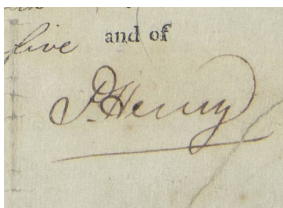 five and of
P. Henry